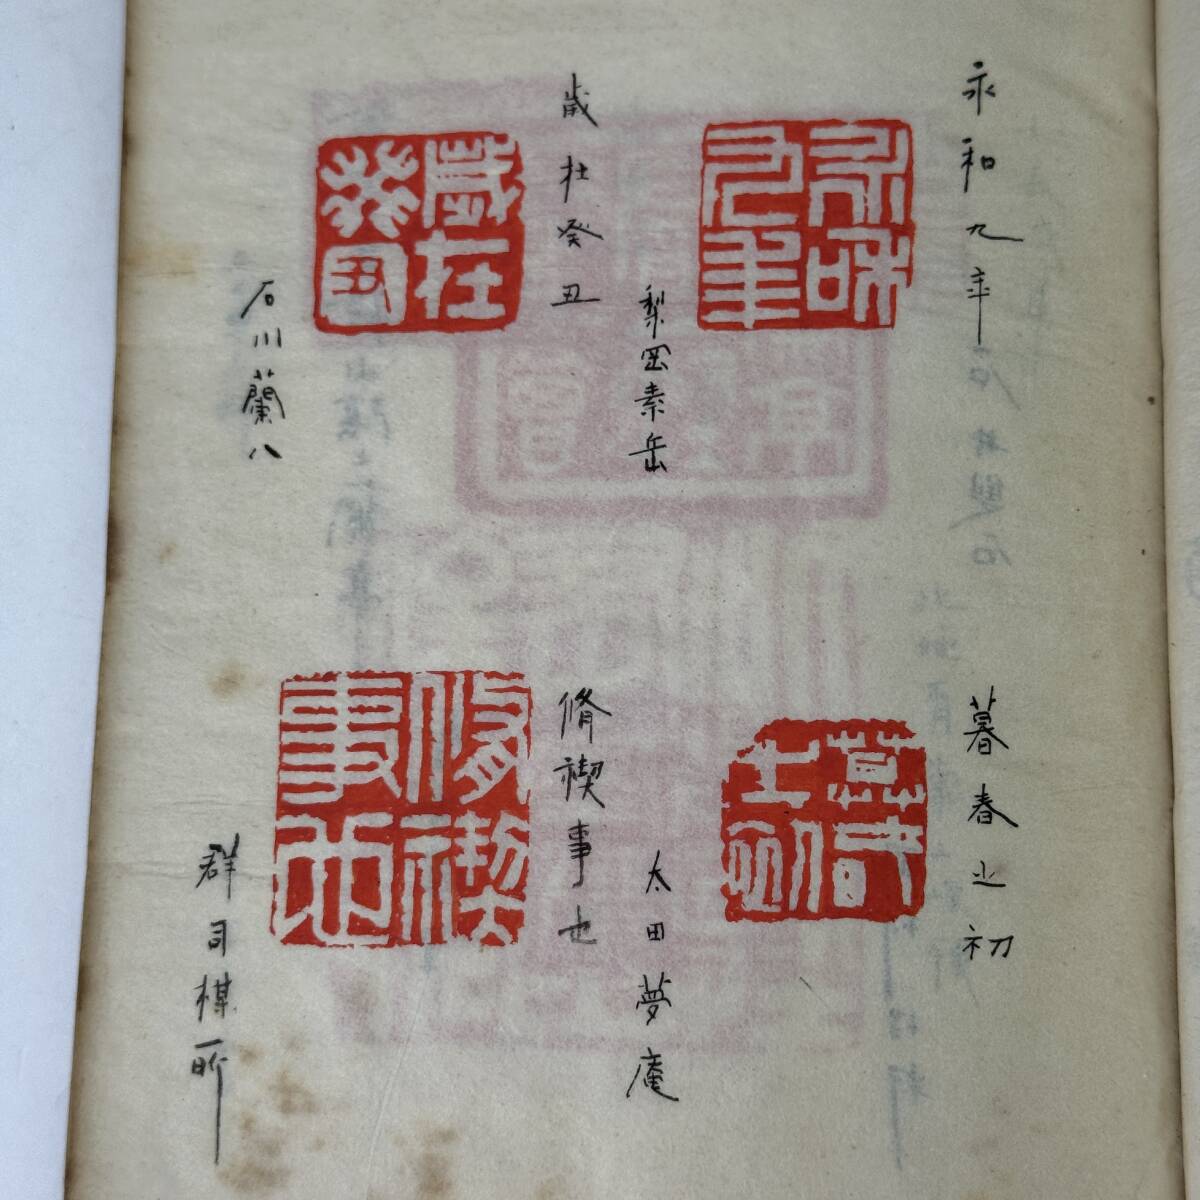 永和九年
永和九年
梨岡素岳
歳在癸丑
歳在癸丑
石川蘭八
暮春之初
暮春之初
太田夢庵
脩禊事也
脩禊事也
群司楳所